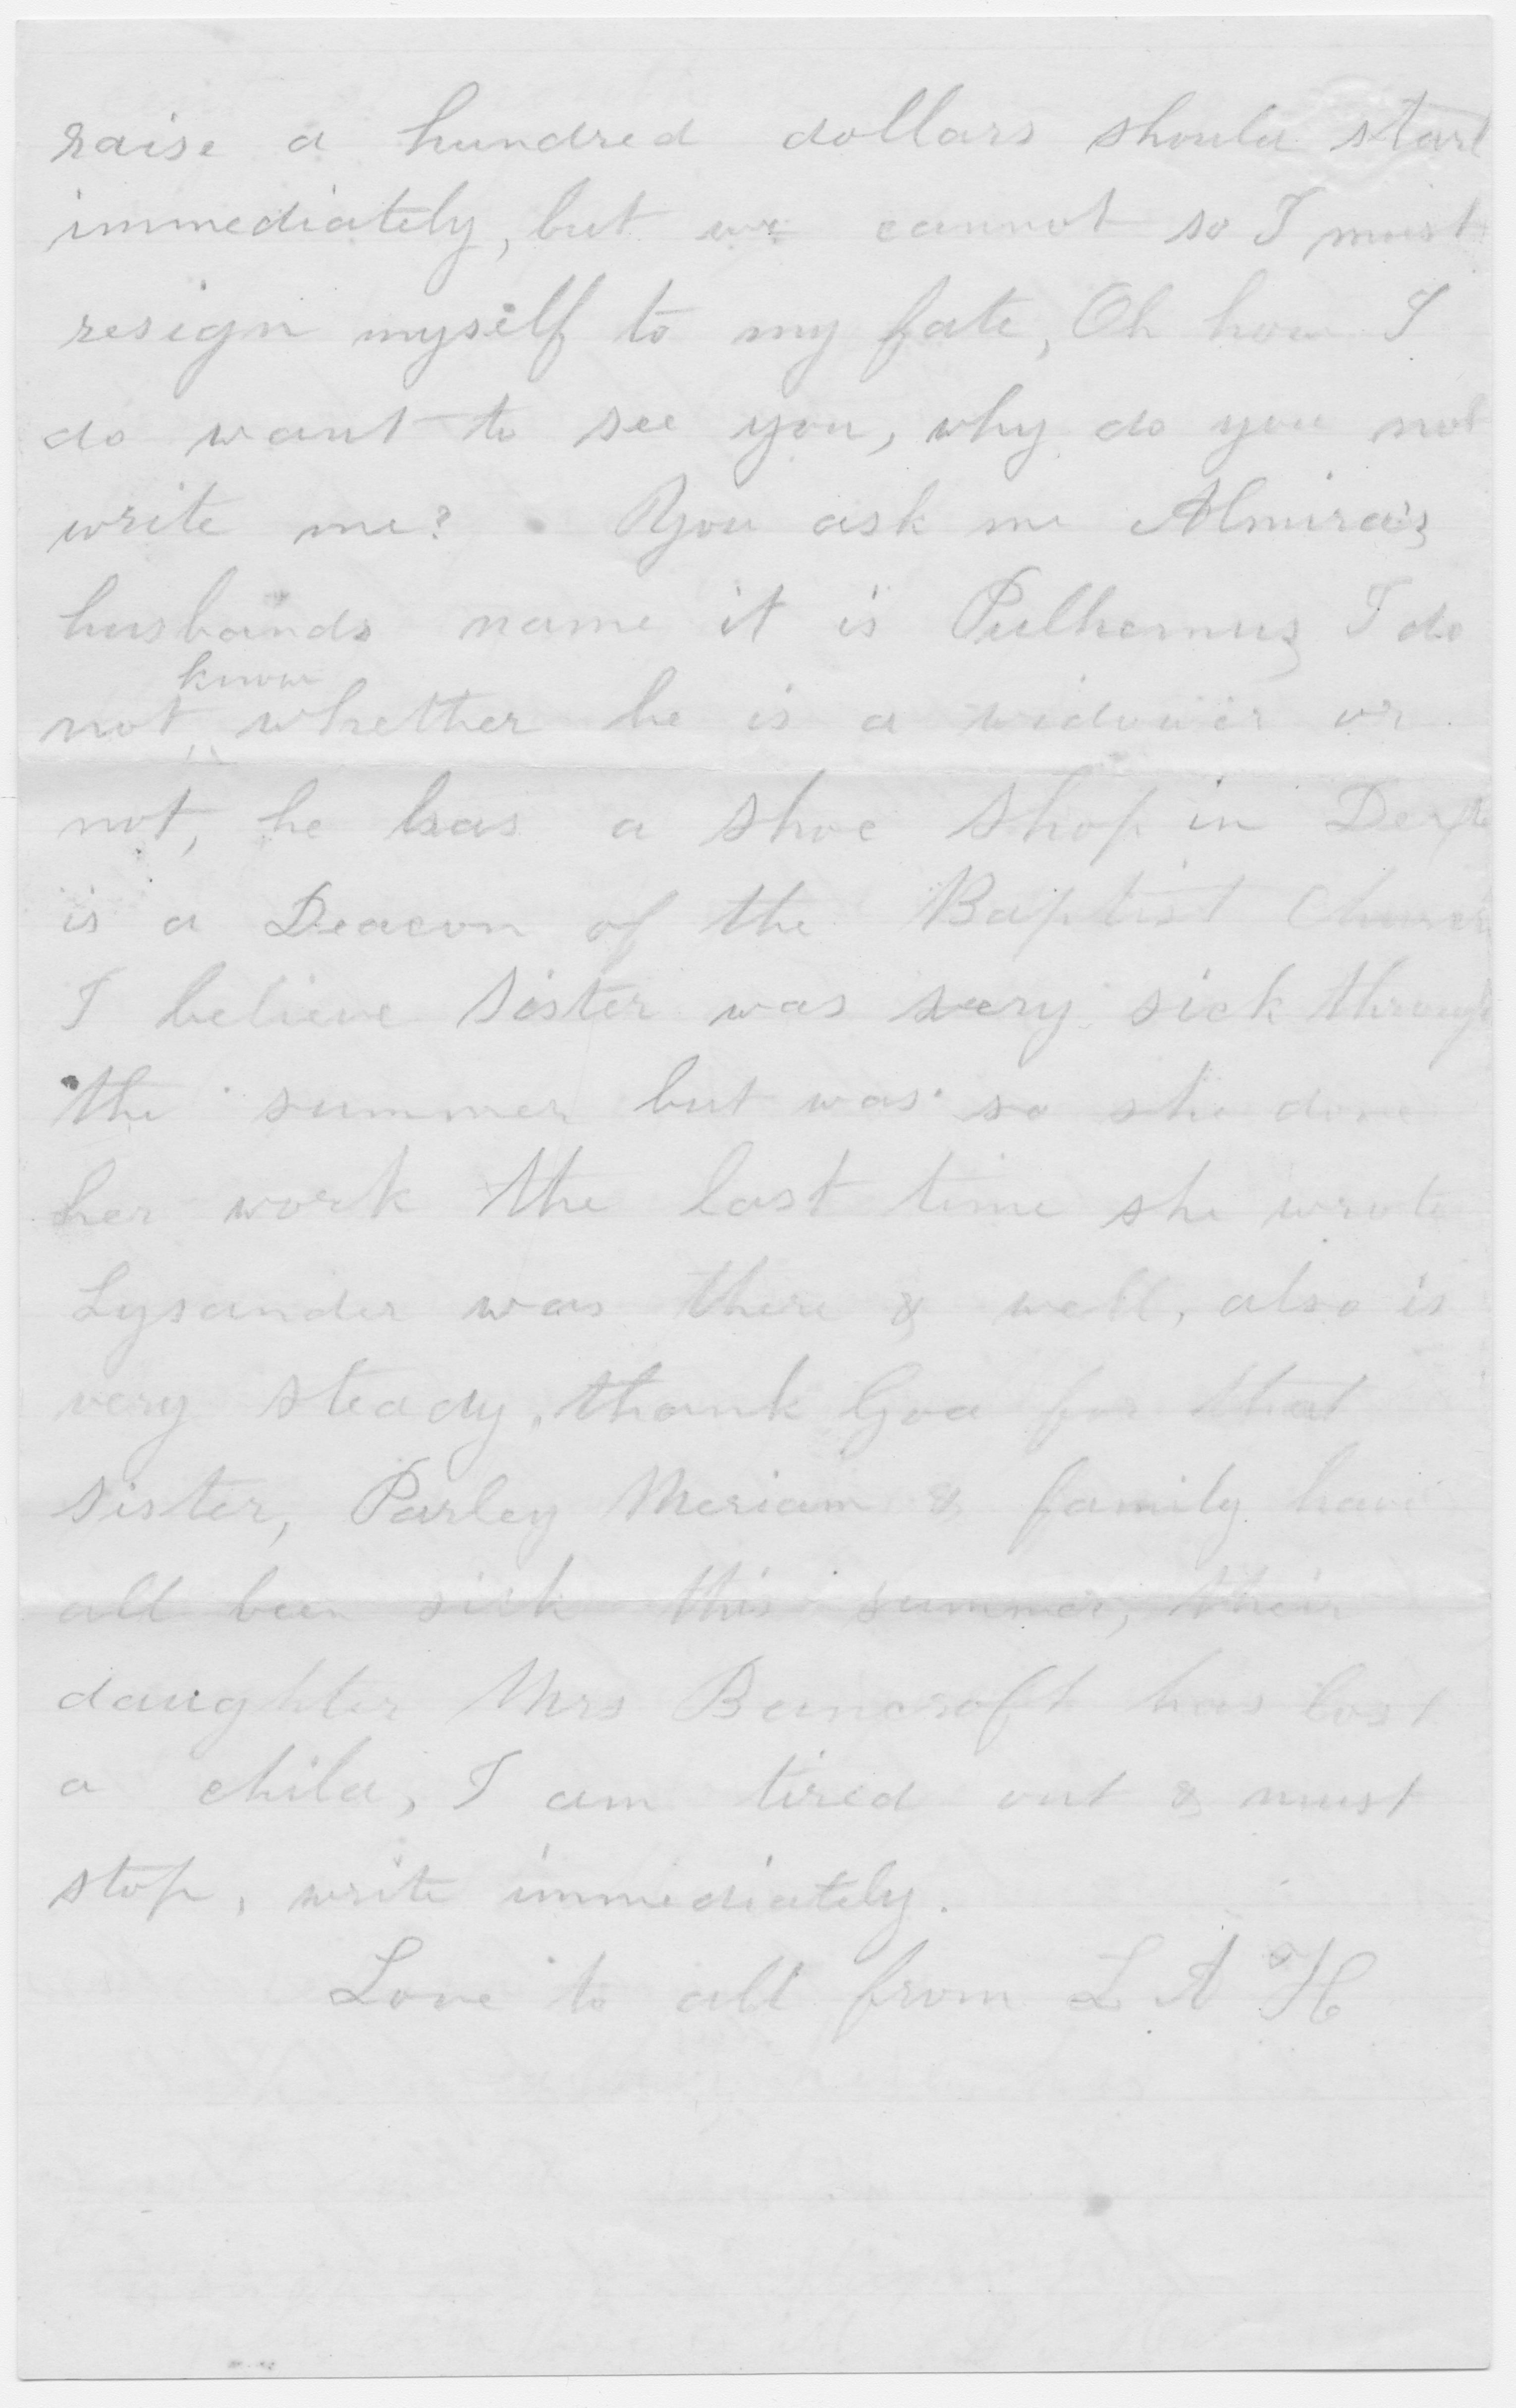 raise a hundred dollars should start
immediately, but we cannot so I must
resign myself to my fate, Oh how I
do want to see you, why do you not
write me? You ask me Almira's
husbands name it is Pulhemus I do
know
not whether he is a widower or
not, he has a shoe shop in
is a Deacon of the Baptist Church
I believe Sister was very sick through
the summer but was so she done
her work the last time she wrote
Lysander was there & well, also is
very steady, thank God for that
sister, Parley Meriam & family have
all been sick this summer, their
daughter Mrs Bancroft has lost
a child, I am tired out & must
stop, write immediately.
Love to all from L A H